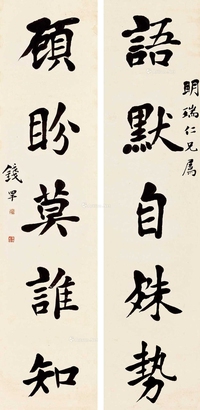 語默自殊勢
明瑞仁兄屬
顧盼莫誰知
錢罕